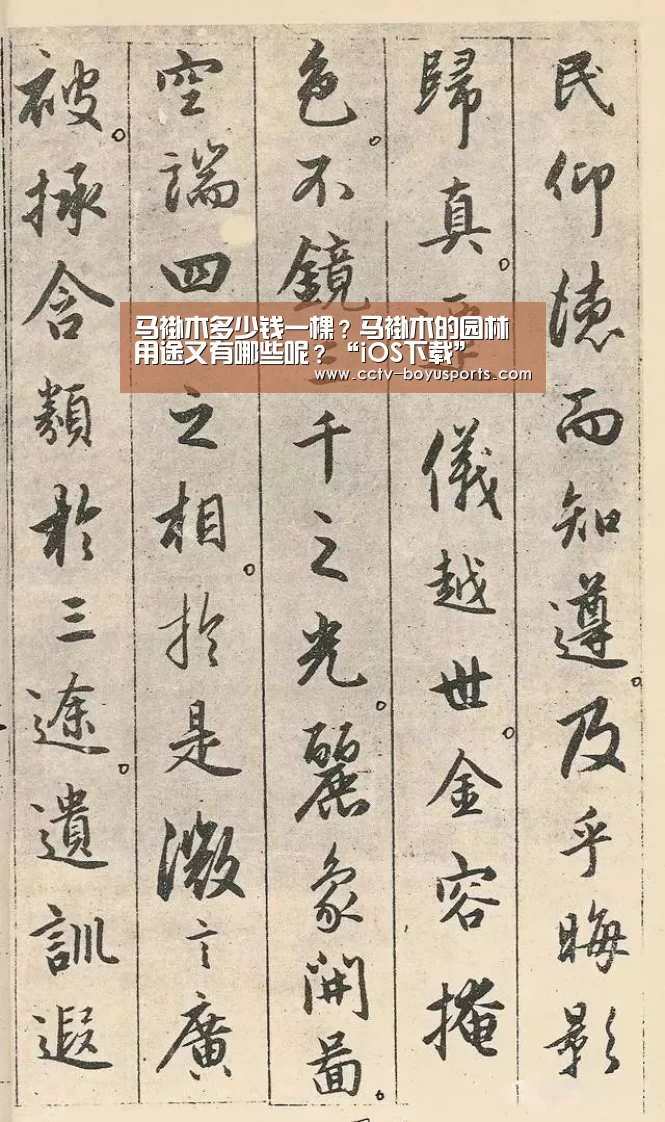 民仰德而知遵。及乎晦影
歸真。儀越世。金容掩
色。不鏡三千之光。麗象開圖。
空端四之相。於是微言廣
被。拯含類於三途。遺訓遐
马褂木多少钱一棵？马褂木的园林
用途又有哪些呢？“iOS下载”
www.cctv-boyusports.com